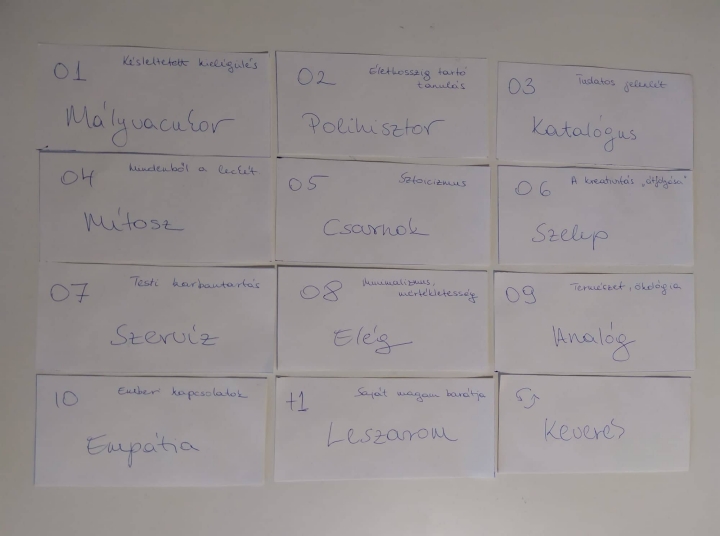 01 Késleltetett kielégülés
Mályvacukor
02 Élethosszig tartó
tanulás
Polihisztor
03 Tudatos jelenlét
Katalógus
04 Mindenből a leckét
Mítosz
05 Sztoicizmus
Csarnok
06 A kreativitás „átfolyása”
Szelep
07 Testi karbantartás
Szervíz
08 Minimalizmus,
mértékletesség
Elég
09 Természet, ökológia
Analóg
10 Ember kapcsolatok
Empátia
+1 Saját magam barátja
Leszarom
Keverés